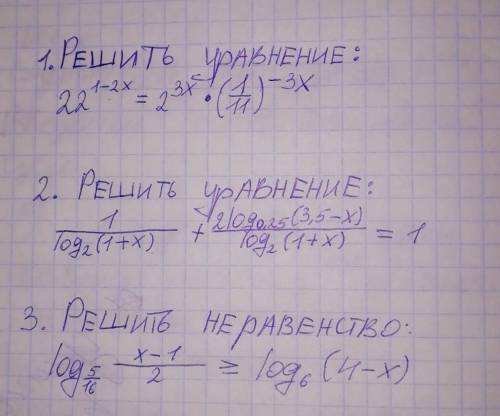 1. РЕШИТЬ уРАВНЕНИЕ:
22^(1-2x) = 2^(3x) · (1/11)^(-3x)
2. РЕШИТЬ уРАВНЕНИЕ:
1/log₂(1+x) + 2log₀,₂₅(3,5-x)/log₂(1+x) = 1
3. РЕШИТЬ НЕРАВЕНСТВО:
log_(5/16) (x-1)/2 ≥ log₆(4-x)